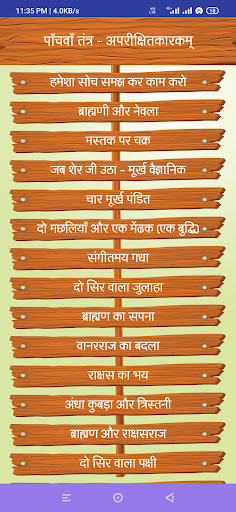 11:35 PM | 4.0KB/s
Vo
LTE
पाँचवाँ तंत्र - अपरीक्षितकारकम्
हमेशा सोच समझ कर काम करो
ब्राह्मणी और नेवला
मस्तक पर चक्र
जब शेर जी उठा - मूर्ख वैज्ञानिक
चार मूर्ख पंडित
दो मछलियाँ और एक मेंढक (एक बुद्धि)
संगीतमय गधा
दो सिर वाला जुलाहा
ब्राह्मण का सपना
वानरराज का बदला
राक्षस का भय
अंधा कुबड़ा और त्रिस्तनी
ब्राह्मण और राक्षसराज
दो सिर वाला पक्षी